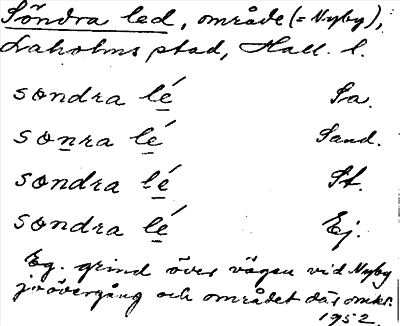 Söndra led, område (= Nyby),
Laholms stad, Hall. l.
søndra lé Sa.
sønra lé Sand.
søndra lé St.
søndra lé Ej.
Eg. grind över vägen vid Nyby
jvövergång och området där omkr.
1952.